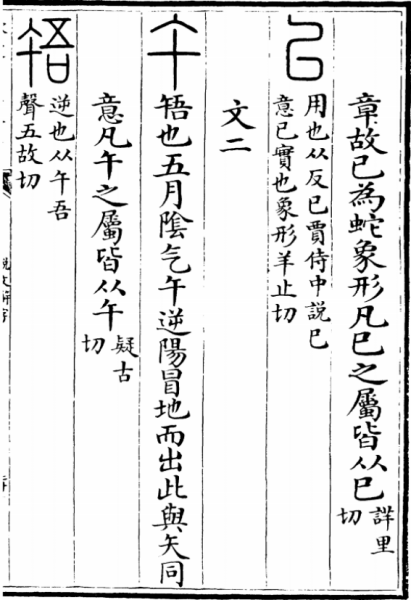 章故巳為蛇象形凡巳之屬皆从巳詳里切
㠯用也从反巳賈侍中說巳
意巳實也象形羊止切
文二
午啎也五月陰气午逆陽冒地而出此與矢同
意凡午之屬皆从午疑古切
啎逆也从午吾
聲五故切